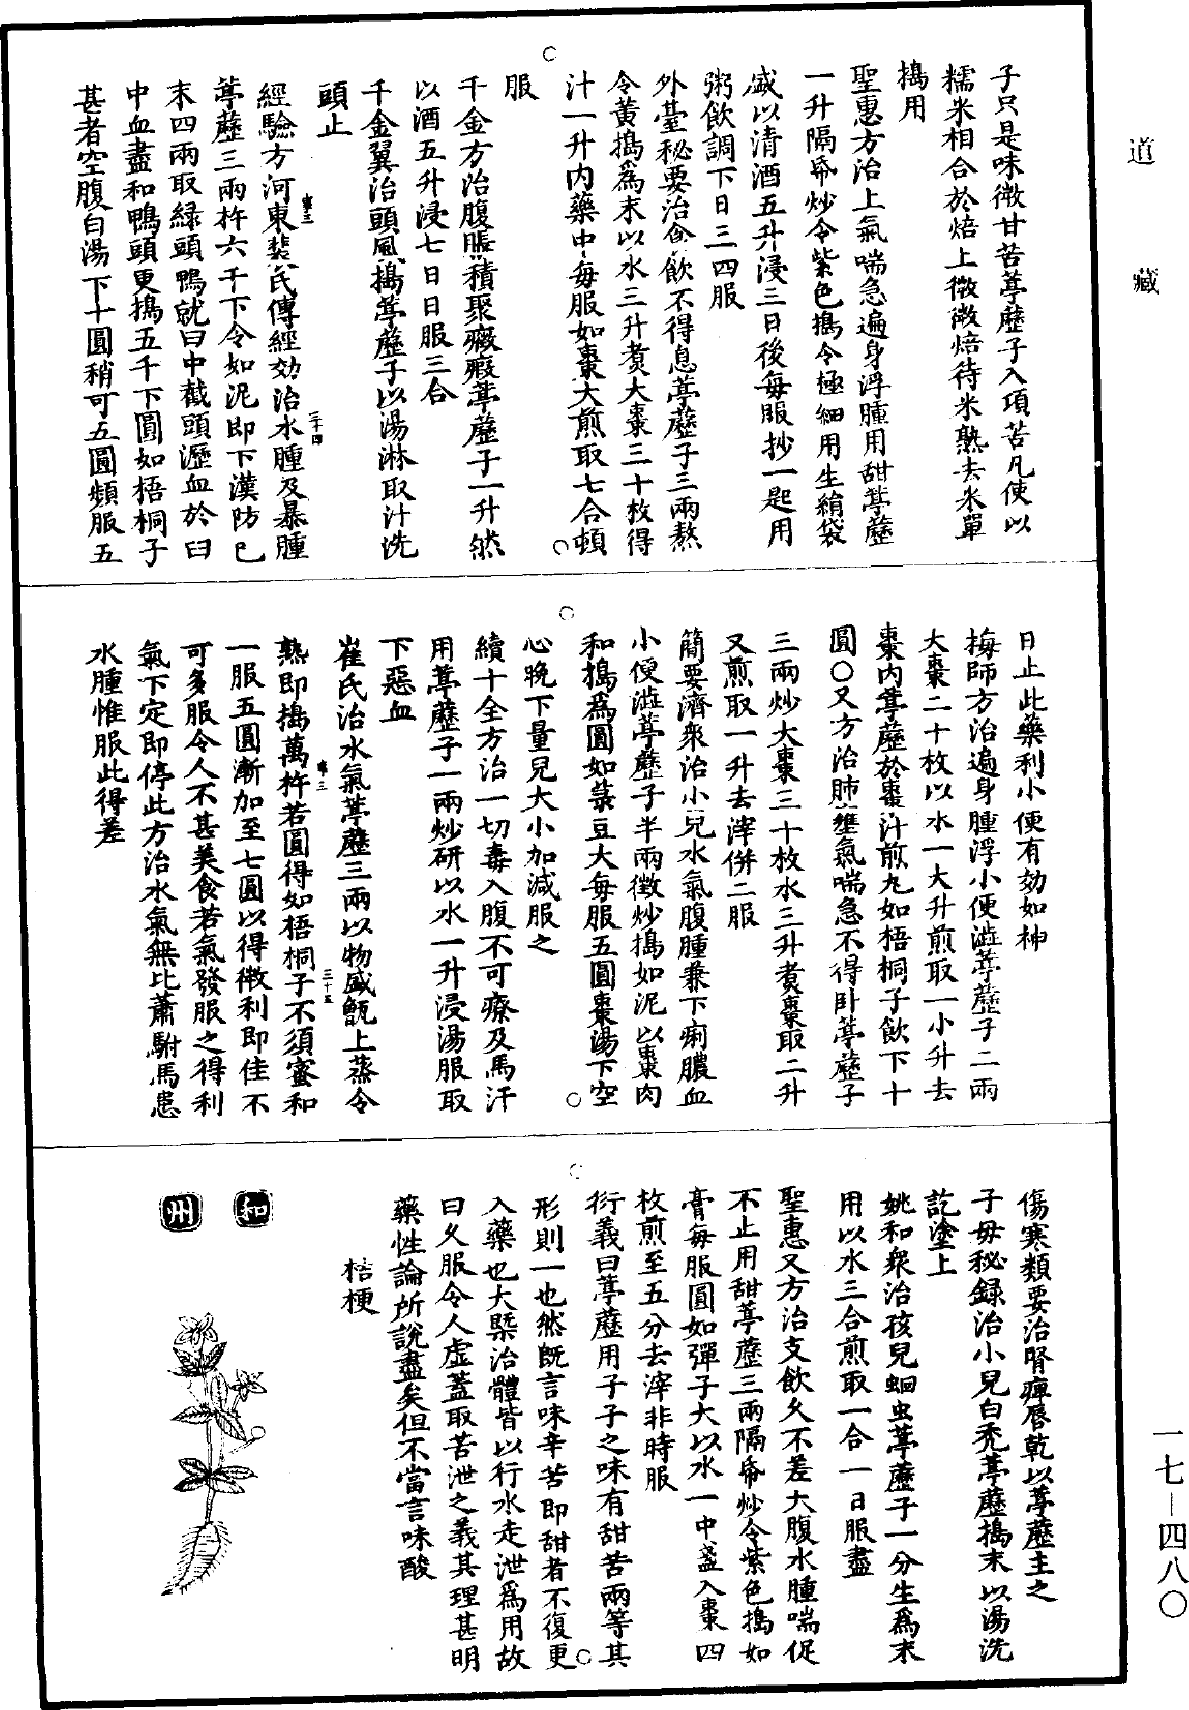 道藏
子只是味微甘苦葶藶子入項苦凡使以
糯米相合於焙上微微焙待米熟去米單
搗用
聖惠方治上氣喘急遍身浮腫用甜葶藶
一升隔帋炒令紫色搗令極細用生絹袋
盛以清酒五升浸三日後每服抄一匙用
粥飲調下日三四服
外臺秘要治食飲不得息葶藶子三兩熬
令黃搗爲末以水三升煑大棗三十枚得
汁一升內藥中每服如棗大煎取七合頓
服
千金方治腹脹積聚癥瘕葶藶子一升熬
以酒五升浸七日日服三合
千金翼治頭風搗葶藶子以湯淋取汁洗
頭止
經驗方河東裴氏傳經効治水腫及暴腫
葶藶三兩杵六千下令如泥即下漢防巳
末四兩取緑頭鴨就臼中截頭瀝血於臼
中血盡和鴨頭更搗五千下圓如梧桐子
甚者空腹白湯下十圓稍可五圓頻服五
日止此藥利小便有効如神
梅師方治遍身腫浮小便澁葶藶子二兩
大棗二十枚以水一大升煎取一小升去
棗內葶藶於棗汁煎丸如梧桐子飲下十
圓○又方治肺壅氣喘急不得卧葶藶子
三兩炒大棗三十枚水三升煑棗取二升
又煎取一升去滓併二服
簡要濟衆治小兒水氣腹腫兼下痢膿血
小便澁葶藶子半兩微炒搗如泥以棗肉
和搗爲圓如菉豆大每服五圓棗湯下空
心晚下量兒大小加減服之
續十全方治一切毒入腹不可療及馬汗
用葶藶子一兩炒研以水一升浸湯服取
下惡血
崔氏治水氣葶藶三兩以物盛甑上蒸令
熟即搗萬杵若圓得如梧桐子不須蜜和
一服五圓漸加至七圓以得微利即佳不
可多服令人不甚美食若氣發服之得利
氣下定即停此方治水氣無比蕭駙馬患
水腫惟服此得差
傷寒類要治腎癉唇乾以葶藶主之
子母秘録治小兒白禿葶藶搗末以湯洗
訖塗上
姚和衆治孩兒蛔虫葶藶子一分生爲末
用以水三合煎取一合一日服盡
聖惠又方治支飲久不差大腹水腫喘促
不止用甜葶藶三兩隔帋炒令紫色搗如
膏每服圓如彈子大以水一中盞入棗四
枚煎至五分去滓非時服
衍義曰葶藶用子子之味有甜苦兩等其
形則一也然既言味辛苦即甜者不復更
入藥也大槩治體皆以行水走泄爲用故
曰久服令人虛蓋取苦泄之義其理甚明
藥性論所說盡矣但不當言味酸
桔梗
和州
一七—四八〇
二十四
三十五